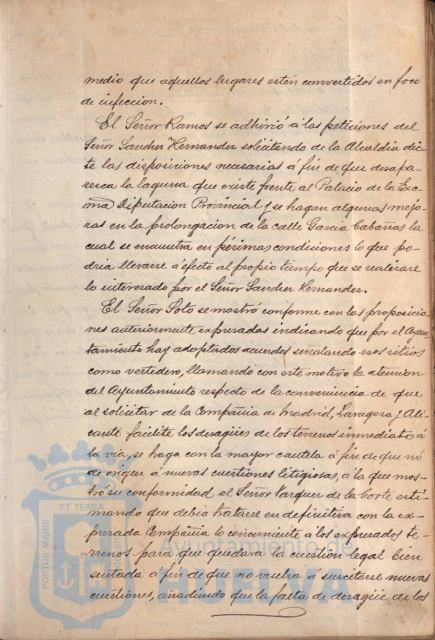 medio que aquellos lugares estén convertidos en foco
de infeccion.
El Señor Ramos se adhirió á las peticiones del
Señor Sanchez Hernandez solicitando de la Alcaldia dic
te las disposiciones necesarias á fin de que desapa
rezca la laguna que existe frente al Palacio de la Exc
ma Diputacion Provincial y se hagan algunas mejo
ras en la prolongacion de la calle Garcia Cabañas la
cual se encuentra en pésimas condiciones lo que po-
dria llevarse á efecto al propio tiempo que se realizase
lo interesado por el Señor Sanchez Hernandez.
El Señor Soto se mostró conforme con las proposicio
nes anteriormente expresadas indicando que por el Ayun
tamiento hay adoptados acuerdos señalando esos sitios
como vertedero, llamando con este motivo la atencion
del Ayuntamiento respecto de la conveniencia de que
al solicitar de la Compañia de Madrid, Zaragoza y Ali
cante facilite los desagües de los terrenos inmediatos á
la via, se haga con la mayor cautela á fin de que no
dé origen á nuevas cuestiones litigiosas, á la que mos
tró su conformidad el Señor Vazquez de la Corte esti
mando que debia tratarse en definitiva con la ex-
presada Compañia lo concerniente á los expresados te-
rrenos para que quedara la cuestion legal bien
sentada á fin de que no vuelva á suscitarse nuevas
cuestiones, añadiendo que la falta de desagüe de los
PORTUS MARIS
ET TERRÆ